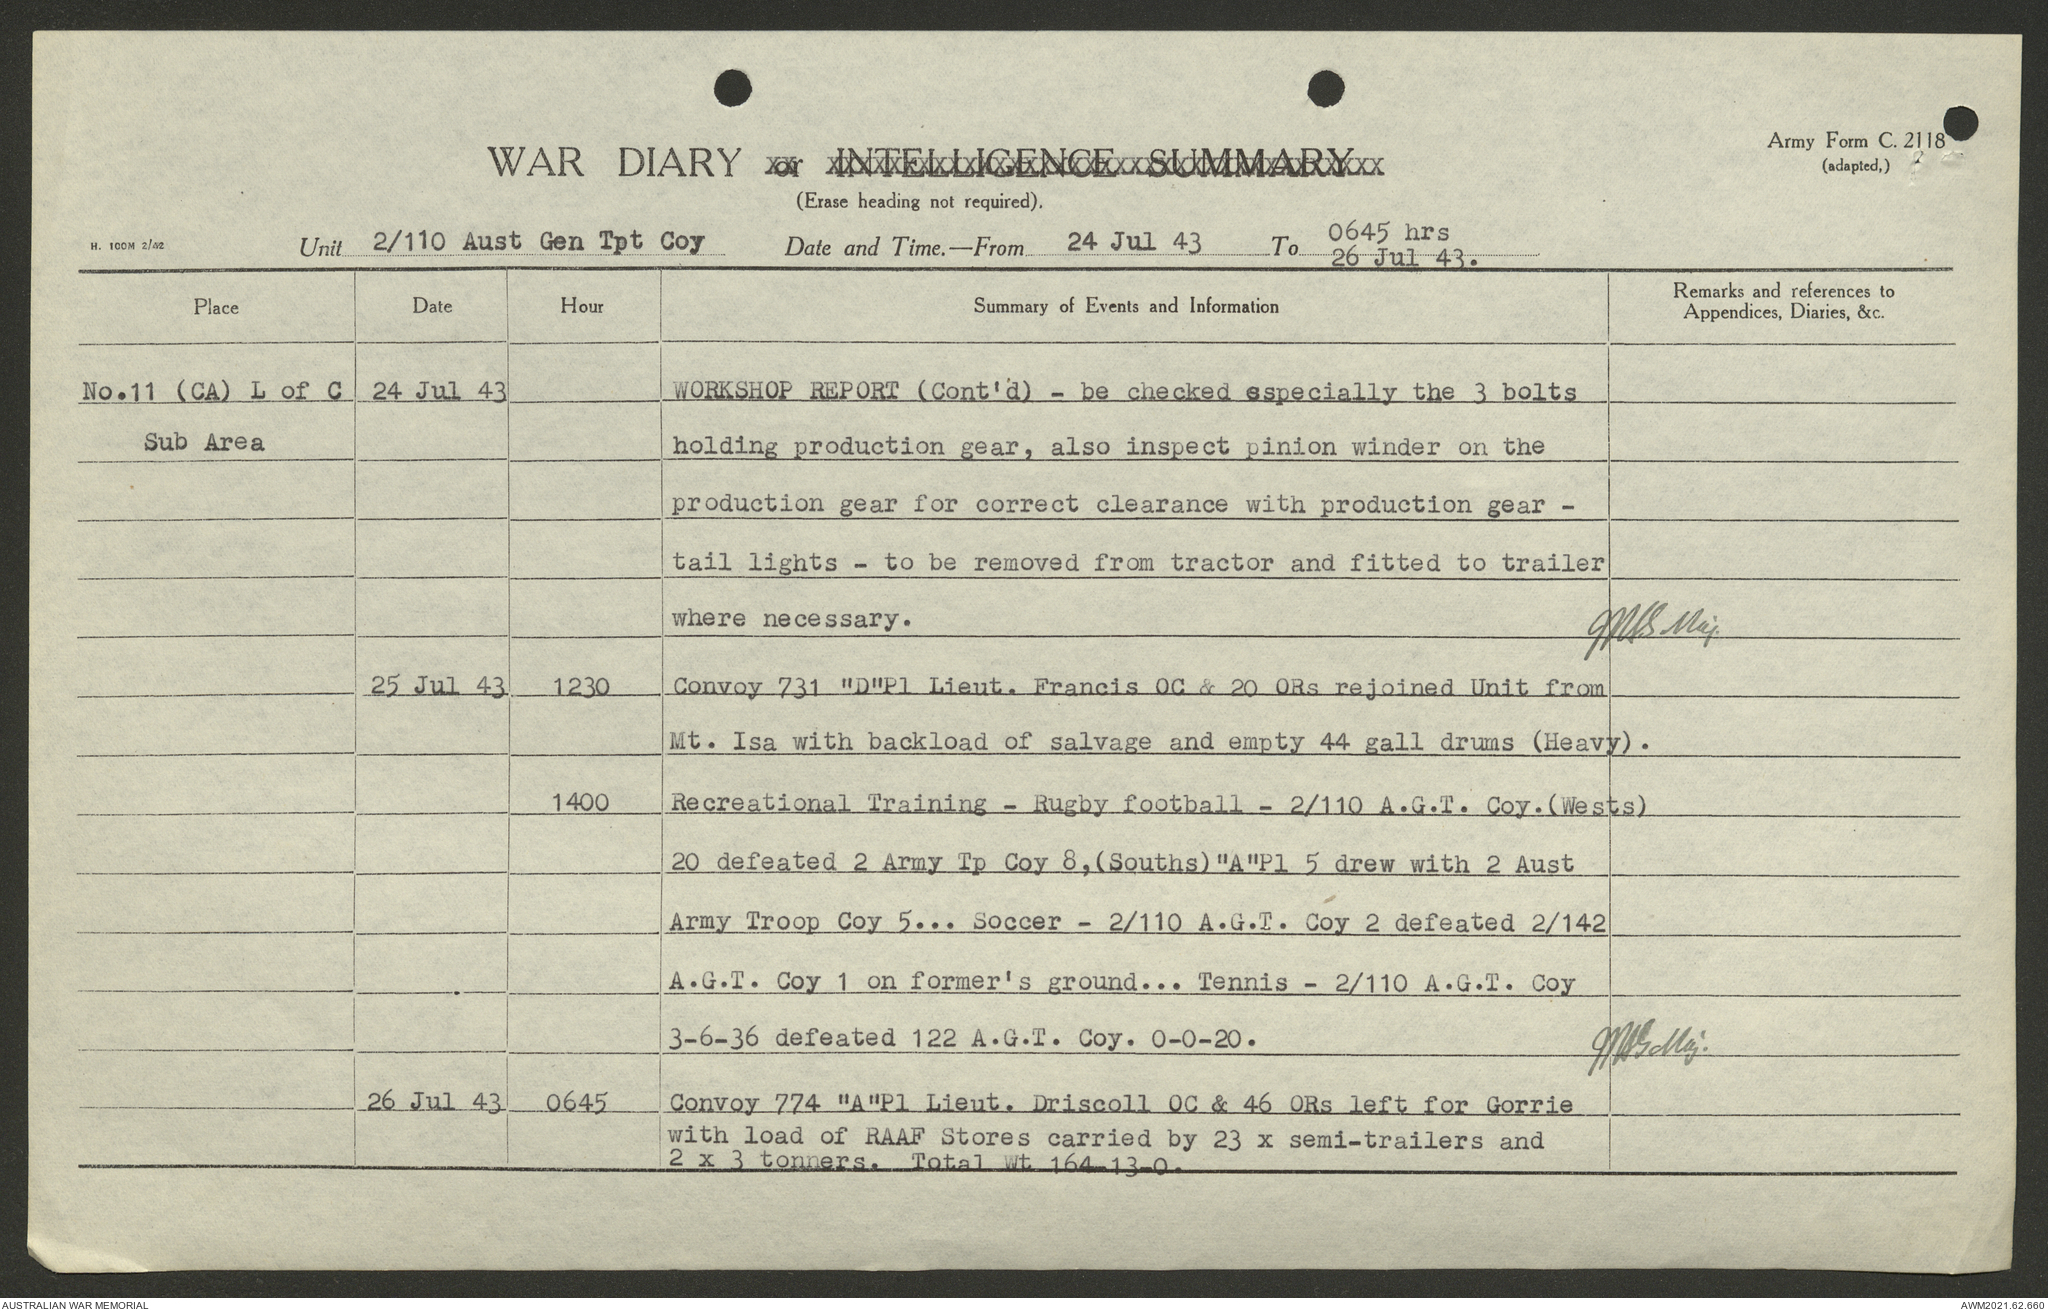 Army Form C. 2118
(adapted,)
WAR DIARY or INTELLIGENCE SUMMARY
(Erase heading not required).
H. 100M 2/42
Unit 2/110 Aust Gen Tpt Coy Date and Time.—From 24 Jul 43 To 0645 hrs
26 Jul 43.
Place Date Hour Summary of Events and Information Remarks and references to
Appendices, Diaries, &c.
No.11 (CA) L of C 24 Jul 43 WORKSHOP REPORT (Cont'd) - be checked especially the 3 bolts
Sub Area holding production gear, also inspect pinion winder on the
production gear for correct clearance with production gear -
tail lights - to be removed from tractor and fitted to trailer
where necessary. Maj.
25 Jul 43 1230 Convoy 731 "D"Pl Lieut. Francis OC & 20 ORs rejoined Unit from
Mt. Isa with backload of salvage and empty 44 gall drums (Heavy).
1400 Recreational Training - Rugby football - 2/110 A.G.T. Coy.(Wests)
20 defeated 2 Army Tp Coy 8,(Souths)"A"Pl 5 drew with 2 Aust
Army Troop Coy 5... Soccer - 2/110 A.G.T. Coy 2 defeated 2/142
A.G.T. Coy 1 on former's ground... Tennis - 2/110 A.G.T. Coy
3-6-36 defeated 122 A.G.T. Coy. 0-0-20. Maj.
26 Jul 43 0645 Convoy 774 "A"Pl Lieut. Driscoll OC & 46 ORs left for Gorrie
with load of RAAF Stores carried by 23 x semi-trailers and
2 x 3 tonners. Total Wt 164-13-0.
AUSTRALIAN WAR MEMORIAL AWM2021.62.660